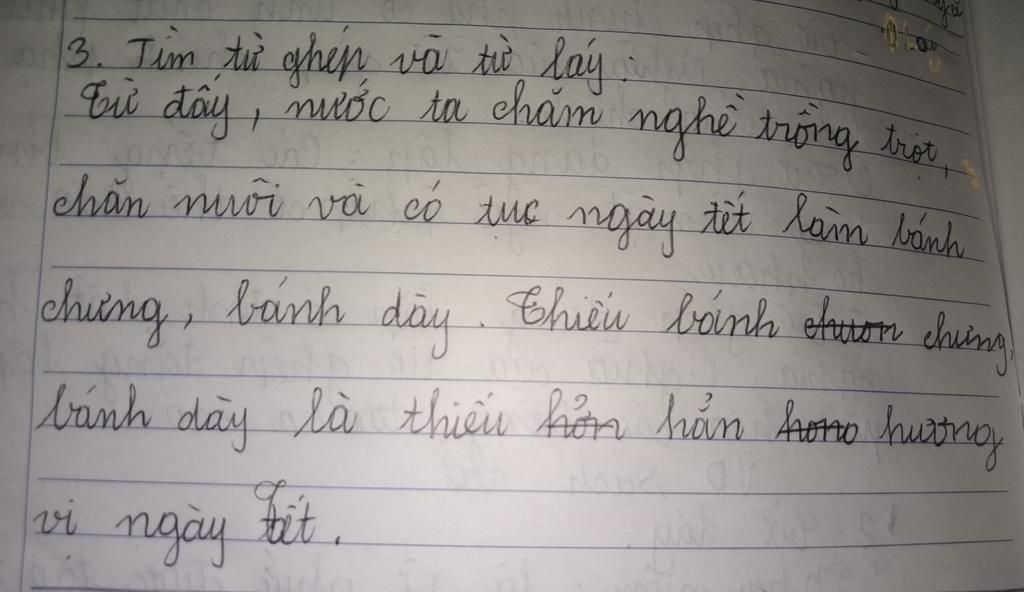 3. Tìm từ ghép và từ láy:
Từ đấy, nước ta chăm nghề trồng trọt,
chăn nuôi và có tục ngày tết làm bánh
chưng, bánh dày. Thiếu bánh chưng,
bánh dày là thiếu hẳn hương
vị ngày Tết.